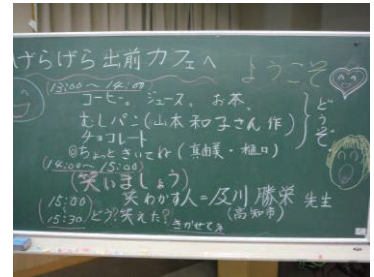 げらげら出前カフェへ ようこそ
(13:00～14:00)
コーヒー。ジュース。お茶。
むしパン(山本和子さん作)
チョコレート
どうぞ
◎ちょっときいてね(真由美・樋口)
(14:00～15:00)
(笑いましょう)
笑わかす人=及川勝栄先生
(高知市)
(15:00～15:30)どう?笑えた?きかせてネ